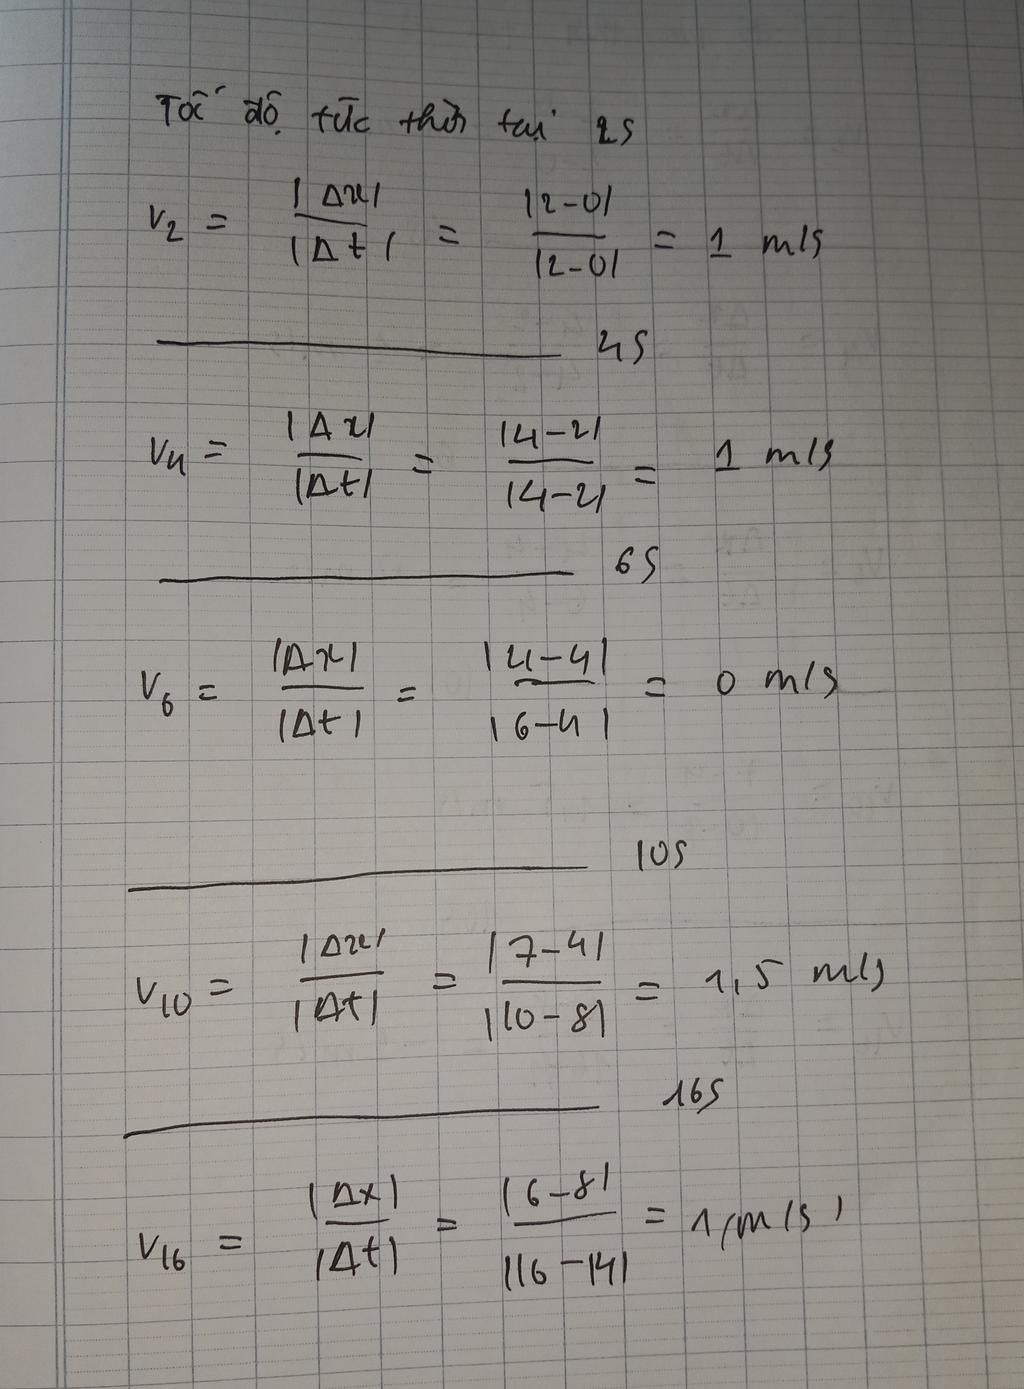 Tốc độ tức thời tại 2s
v₂ = |Δx| / |Δt| = |2-0| / |2-0| = 1 m/s
——————— 4s
v₄ = |Δx| / |Δt| = |4-2| / |4-2| = 1 m/s
——————— 6s
v₆ = |Δx| / |Δt| = |4-4| / |6-4| = 0 m/s
——————— 10s
v₁₀ = |Δx| / |Δt| = |7-4| / |10-8| = 1,5 m/s
——————— 16s
v₁₆ = |Δx| / |Δt| = |6-8| / |16-14| = 1 m/s